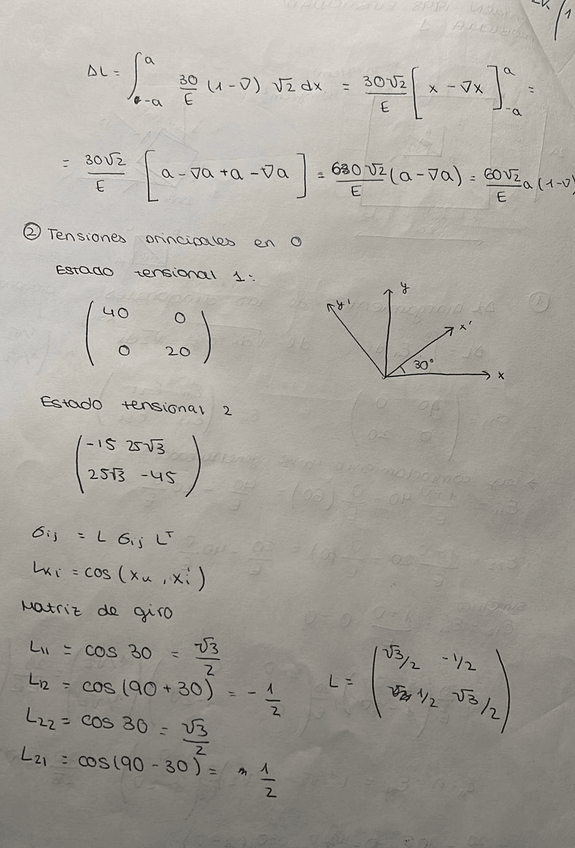 ΔL = ∫_{-a}^{a} 30/E (1-∇) √2 dx = 30√2/E [x - ∇x]_{-a}^{a} =
= 30√2/E [a - ∇a + a - ∇a] = 60√2/E (a - ∇a) = 60√2/E a (1-∇)
② Tensiones principales en O
Estado tensional 1:
(40 0
0 20)
y' y x' 30° x
Estado tensional 2
(-15 25√3
25√3 -45)
σij = L σij L^T
Lki = cos (xk, xi')
Matriz de giro
L11 = cos 30 = √3/2
L12 = cos(90+30) = -1/2
L22 = cos 30 = √3/2
L21 = cos(90-30) = 1/2
L = (√3/2 -1/2
1/2 √3/2)